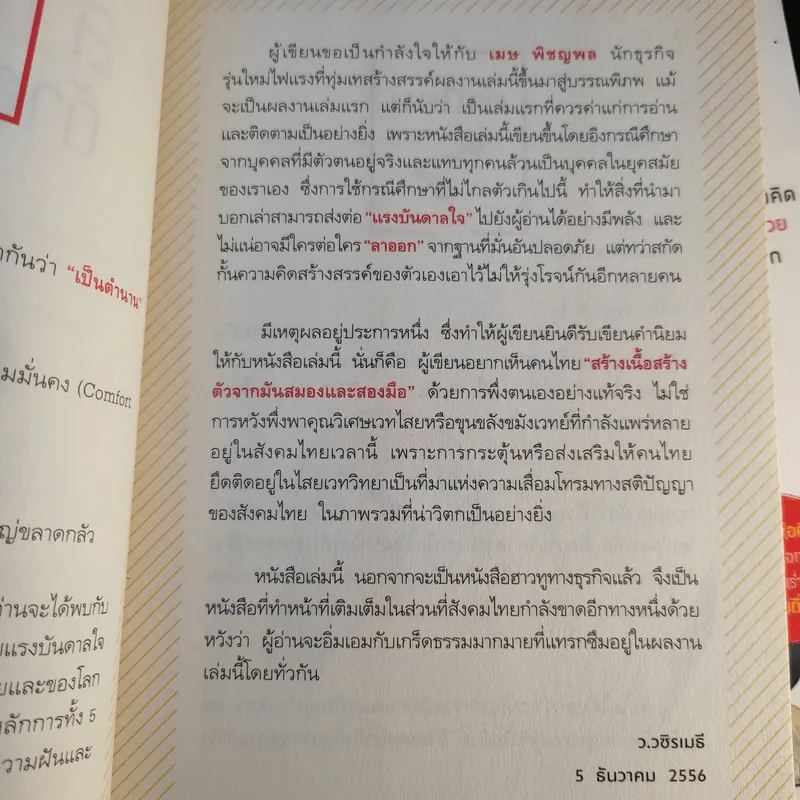 ากันว่า "เป็นตำนาน"
มมั่นคง (Comfort
ญ่ขลาดกลัว
านจะได้พบกับ
ยแรงบันดาลใจ
ยและของโลก
ลักการทั้ง 5
วามฝันและ
ผู้เขียนขอเป็นกำลังใจให้กับ เมษ พิชญพล นักธุรกิจ
รุ่นใหม่ไฟแรงที่ทุ่มเทสร้างสรรค์ผลงานเล่มนี้ขึ้นมาสู่บรรณพิภพ แม้
จะเป็นผลงานเล่มแรก แต่ก็นับว่า เป็นเล่มแรกที่ควรค่าแก่การอ่าน
และติดตามเป็นอย่างยิ่ง เพราะหนังสือเล่มนี้เขียนขึ้นโดยอิงกรณีศึกษา
จากบุคคลที่มีตัวตนอยู่จริงและแทบทุกคนล้วนเป็นบุคคลในยุคสมัย
ของเราเอง ซึ่งการใช้กรณีศึกษาที่ไม่ไกลตัวเกินไปนี้ ทำให้สิ่งที่นำมา
บอกเล่าสามารถส่งต่อ "แรงบันดาลใจ" ไปยังผู้อ่านได้อย่างมีพลัง และ
ไม่แน่อาจมีใครต่อใคร "ลาออก" จากฐานที่มั่นอันปลอดภัย แต่ทว่าสกัด
กั้นความคิดสร้างสรรค์ของตัวเองเอาไว้ไม่ให้รุ่งโรจน์กันอีกหลายคน
มีเหตุผลอยู่ประการหนึ่ง ซึ่งทำให้ผู้เขียนยินดีรับเขียนคำนิยม
ให้กับหนังสือเล่มนี้ นั่นก็คือ ผู้เขียนอยากเห็นคนไทย "สร้างเนื้อสร้าง
ตัวจากมันสมองและสองมือ" ด้วยการพึ่งตนเองอย่างแท้จริง ไม่ใช่
การหวังพึ่งพาคุณวิเศษเวทไสยหรือขุนขลังขมังเวทย์ที่กำลังแพร่หลาย
อยู่ในสังคมไทยเวลานี้ เพราะการกระตุ้นหรือส่งเสริมให้คนไทย
ยึดติดอยู่ในไสยเวทวิทยาเป็นที่มาแห่งความเสื่อมโทรมทางสติปัญญา
ของสังคมไทย ในภาพรวมที่น่าวิตกเป็นอย่างยิ่ง
หนังสือเล่มนี้ นอกจากจะเป็นหนังสือฮาวทูทางธุรกิจแล้ว จึงเป็น
หนังสือที่ทำหน้าที่เติมเต็มในส่วนที่สังคมไทยกำลังขาดอีกทางหนึ่งด้วย
หวังว่า ผู้อ่านจะอิ่มเอมกับเกร็ดธรรมมากมายที่แทรกซึมอยู่ในผลงาน
เล่มนี้โดยทั่วกัน
ว.วชิรเมธี
5 ธันวาคม 2556